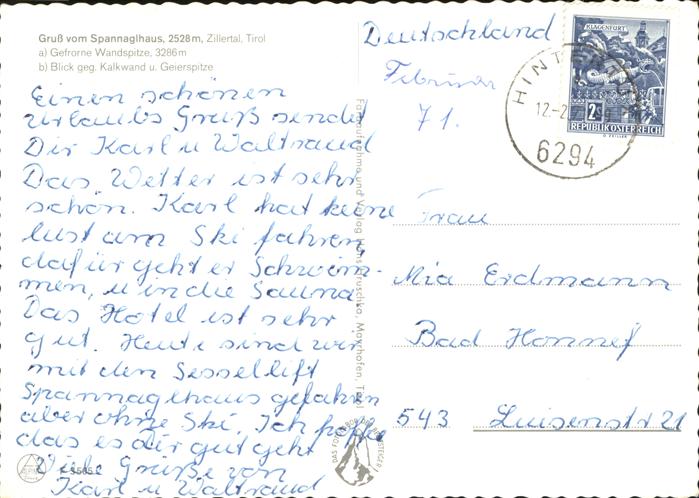 Gruß vom Spannaglhaus, 2528m, Zillertal, Tirol
a) Gefrorne Wandspitze, 3286m
b) Blick geg. Kalkwand u. Geierspitze
Einen schönen
Urlaubs Gruß sendet
Dir Karl u Waltraud
Das Wetter ist sehr
schön. Karl hat keine
lust am Ski fahren,
dafür geht er Schwim-
men, u in die Sauna
Das Hotel ist sehr
gut. Heute sind wir
mit den Sessellift
Spannaglhaus gefahren
aber ohne Ski. Ich hoffe
das es dir gut geht
Viele Grüße von
Karl u Waltraud
Deutschland
Februar
71.
KLAGENFURT
2S
REPUBLIK ÖSTERREICH
HINTERTUX
12.-2.
6294
Frau
Mia Erdmann
Bad Honnef
543 Luisenstr 21
Farbaufnahme und Verlag Hans Hruschka, Mayrhofen, Tirol